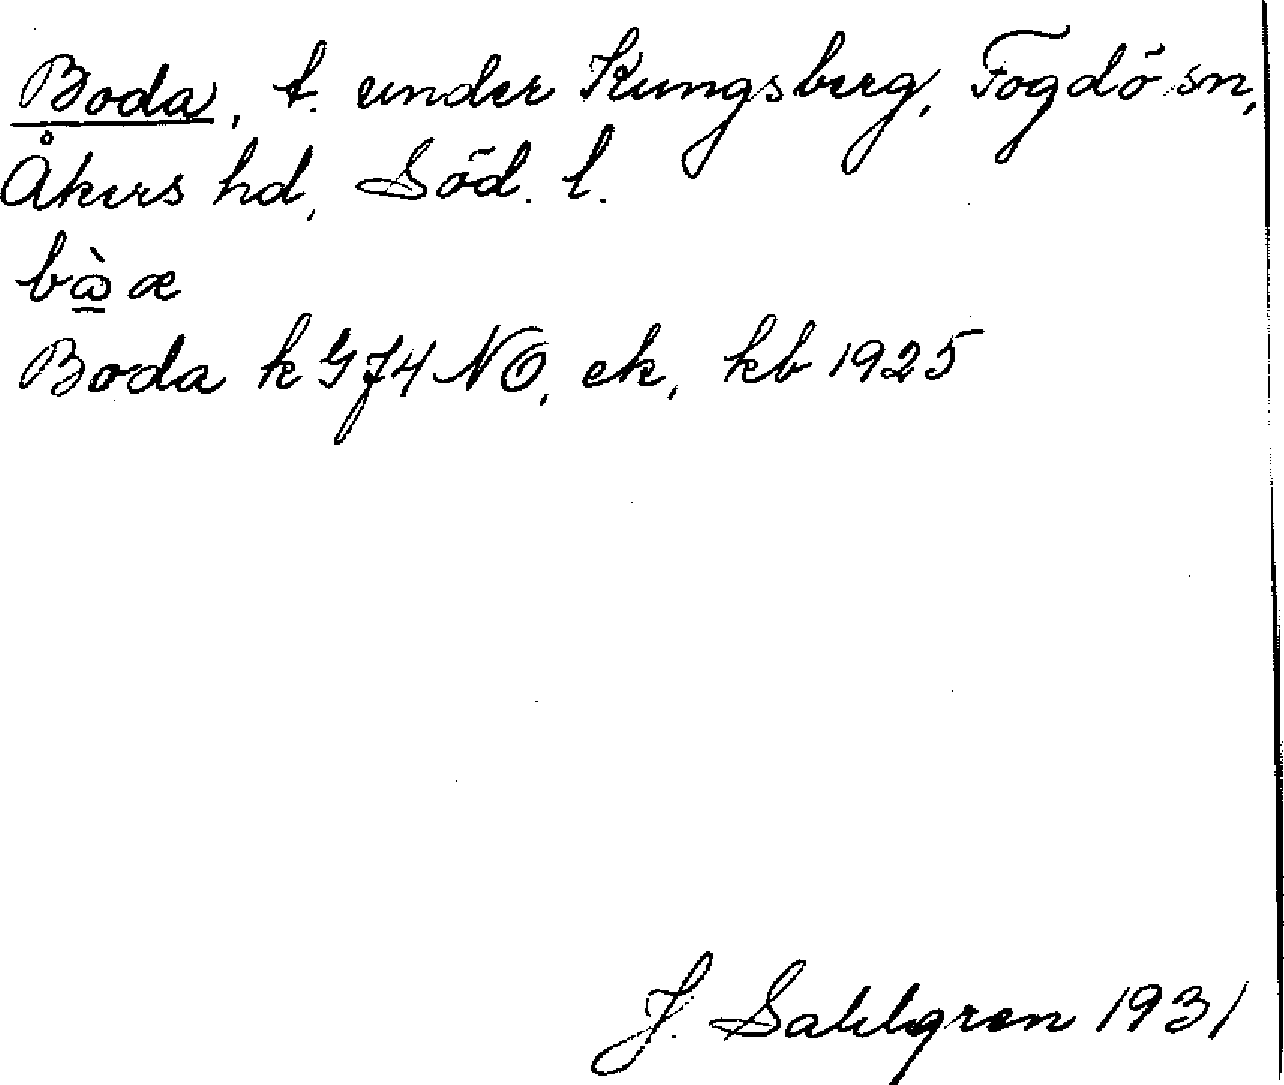 Boda, t. under Kungsberg, Fogdö sn,
Åkers hd, Söd. l.
Boda k G74 NO, ek, kb 1925
J. Sahlgren 1931